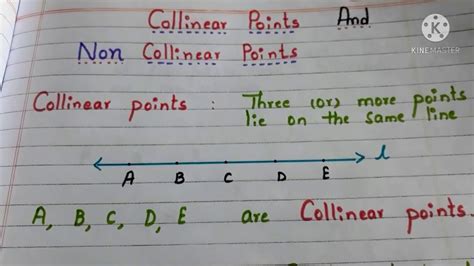 Collinear Points And
Non Collinear Points
KINEMASTER
Collinear points : Three (or) more points
lie on the same line
l
A B C D E
A, B, C, D, E are Collinear points.